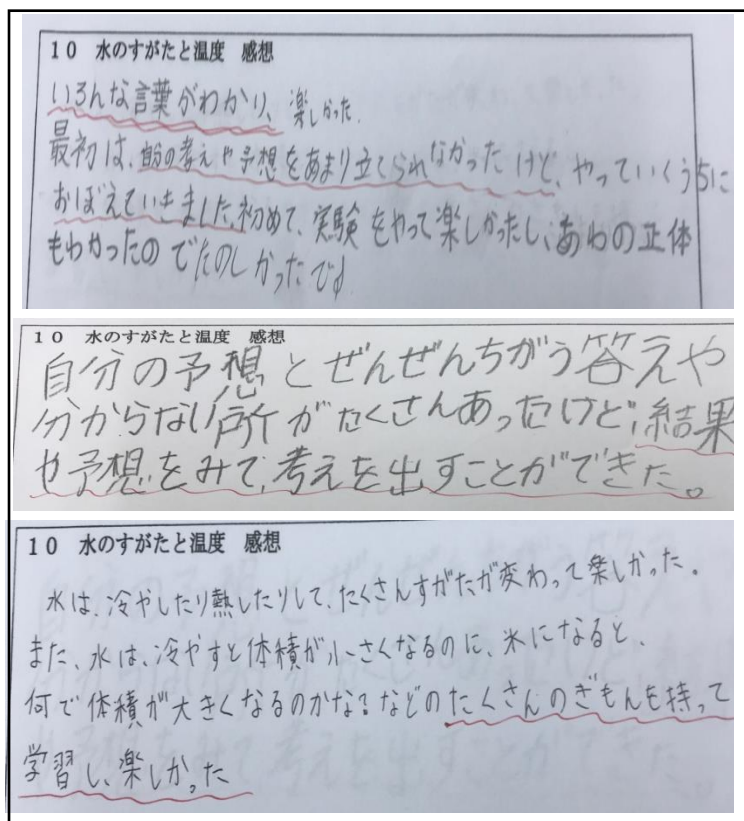 10 水のすがたと温度 感想
いろんな言葉がわかり、楽しかった.
最初は、自分の考えや予想をあまり立てられなかったけど、やっていくうちに
おぼえていきました。初めて、実験をやって楽しかったし、あわの正体
もわかったのでたのしかったです
10 水のすがたと温度 感想
自分の予想とぜんぜんちがう答えや
分からない所がたくさんあったけど、結果
や予想をみて、考えを出すことができた。
10 水のすがたと温度 感想
水は、冷やしたり熱したりして、たくさんすがたが変わって楽しかった。
また、水は、冷やすと体積が小さくなるのに、氷になると、
何で体積が大きくなるのかな?などのたくさんのぎもんを持って
学習し、楽しかった